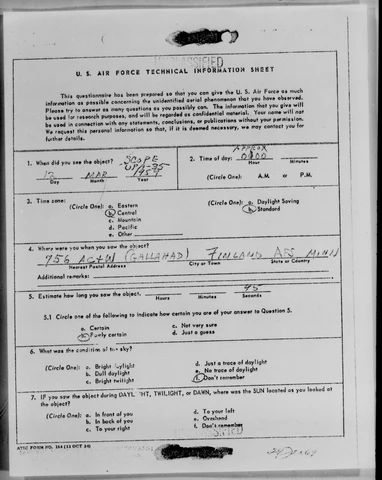 UNCLASSIFIED
U. S. AIR FORCE TECHNICAL INFORMATION SHEET
This questionnaire has been prepared so that you can give the U. S. Air Force as much
information as possible concerning the unidentified aerial phenomenon that you have observed.
Please try to answer as many questions as you possibly can. The information that you give will
be used for research purposes, and will be regarded as confidential material. Your name will not
be used in connection with any statements, conclusions, or publications without your permission.
We request this personal information so that, if it is deemed necessary, we may contact you for
further details.
SCOPE
UPA-35
1. When did you see the object?
12 MAR 1959
Day Month Year
2. Time of day: APPROX 0100
Hour Minutes
(Circle One): A.M. or P.M.
3. Time zone:
(Circle One): a. Eastern
b. Central
c. Mountain
d. Pacific
e. Other
(Circle One): a. Daylight Saving
b. Standard
4. Where were you when you saw the object?
756 AC&W (GALLAHAD) FINLAND AFS MINN
Nearest Postal Address City or Town State or Country
Additional remarks:
5. Estimate how long you saw the object. 45
Hours Minutes Seconds
5.1 Circle one of the following to indicate how certain you are of your answer to Question 5.
a. Certain
b. Fairly certain
c. Not very sure
d. Just a guess
6. What was the condition of the sky?
(Circle One): a. Bright daylight
b. Dull daylight
c. Bright twilight
d. Just a trace of daylight
e. No trace of daylight
f. Don't remember
7. IF you saw the object during DAYLIGHT, TWILIGHT, or DAWN, where was the SUN located as you looked at
the object?
(Circle One): a. In front of you
b. In back of you
c. To your right
d. To your left
e. Overhead
f. Don't remember
ATIC FORM NO. 164 (13 OCT 54)